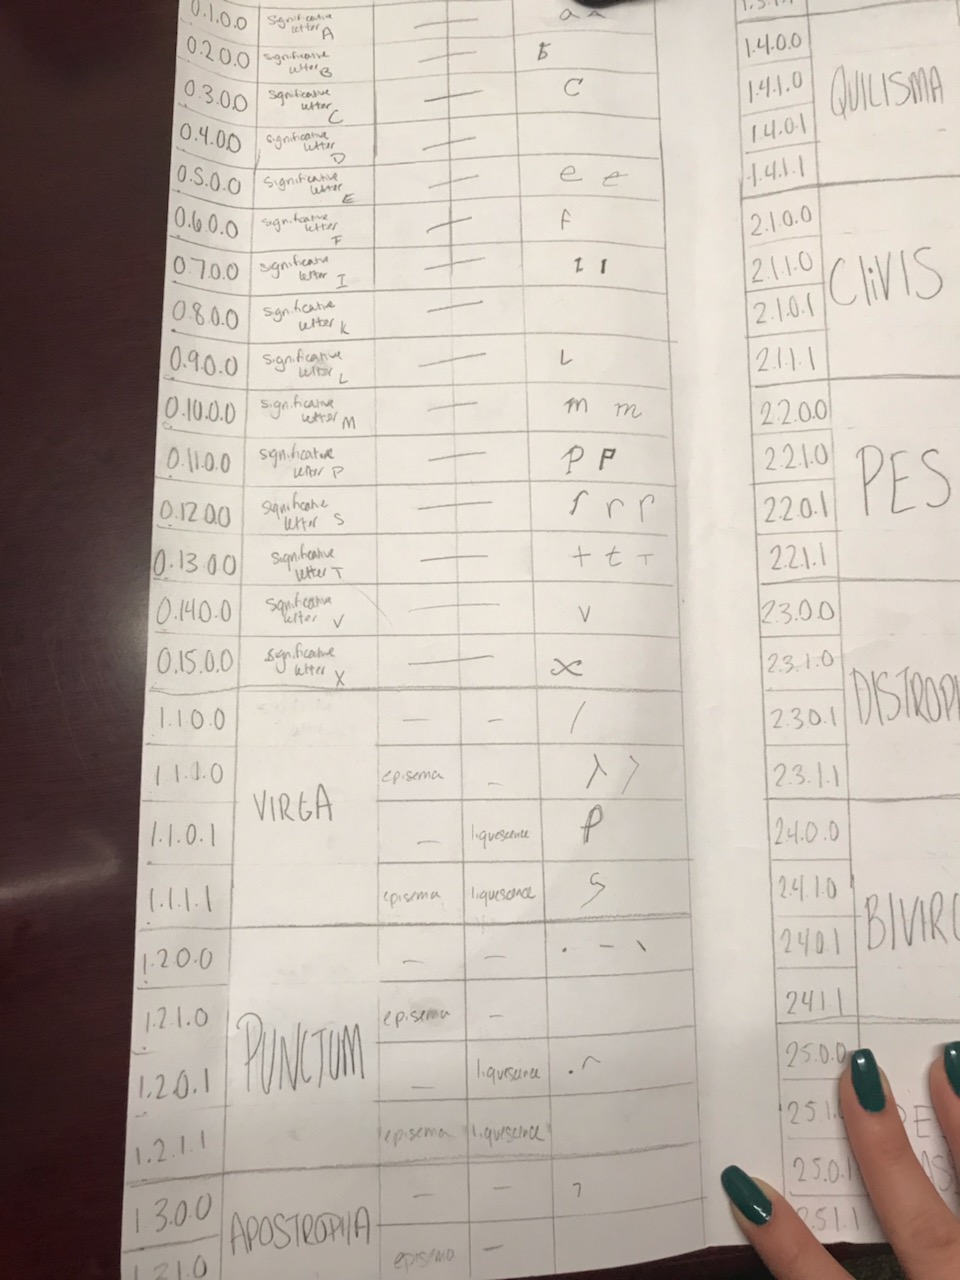 0.1.0.0 Significative letter A — a a
0.2.0.0 Significative letter B — b
0.3.0.0 Significative letter C — C
0.4.0.0 Significative letter D —
0.5.0.0 Significative letter E — e e
0.6.0.0 Significative letter F — f
0.7.0.0 Significative letter I — I I
0.8.0.0 Significative letter K —
0.9.0.0 Significative letter L — L
0.10.0.0 Significative letter M — m m
0.11.0.0 Significative letter P — P P
0.12.0.0 Significative letter S — r r
0.13.0.0 Significative letter T — + t T
0.14.0.0 Significative letter V — V
0.15.0.0 Significative letter X — x
VIRGA
1.1.0.0 — — /
1.1.1.0 episema —
1.1.0.1 — liquescence
1.1.1.1 episema liquescence
PUNCTUM
1.2.0.0 — — . – \
1.2.1.0 episema —
1.2.0.1 — liquescence
1.2.1.1 episema liquescence
APOSTROPHA
1.3.0.0 — —
episema —
QUILISMA
1.4.0.0
1.4.1.0
1.4.0.1
1.4.1.1
CLIVIS
2.1.0.0
2.1.1.0
2.1.0.1
2.1.1.1
PES
2.2.0.0
2.2.1.0
2.2.0.1
2.2.1.1
DISTROP
2.3.0.0
2.3.1.0
2.3.0.1
2.3.1.1
BIVIRG
2.4.0.0
2.4.1.0
2.4.0.1
2.4.1.1
2.5.0.0
2.5.1.
2.5.0.1
2.5.1.1